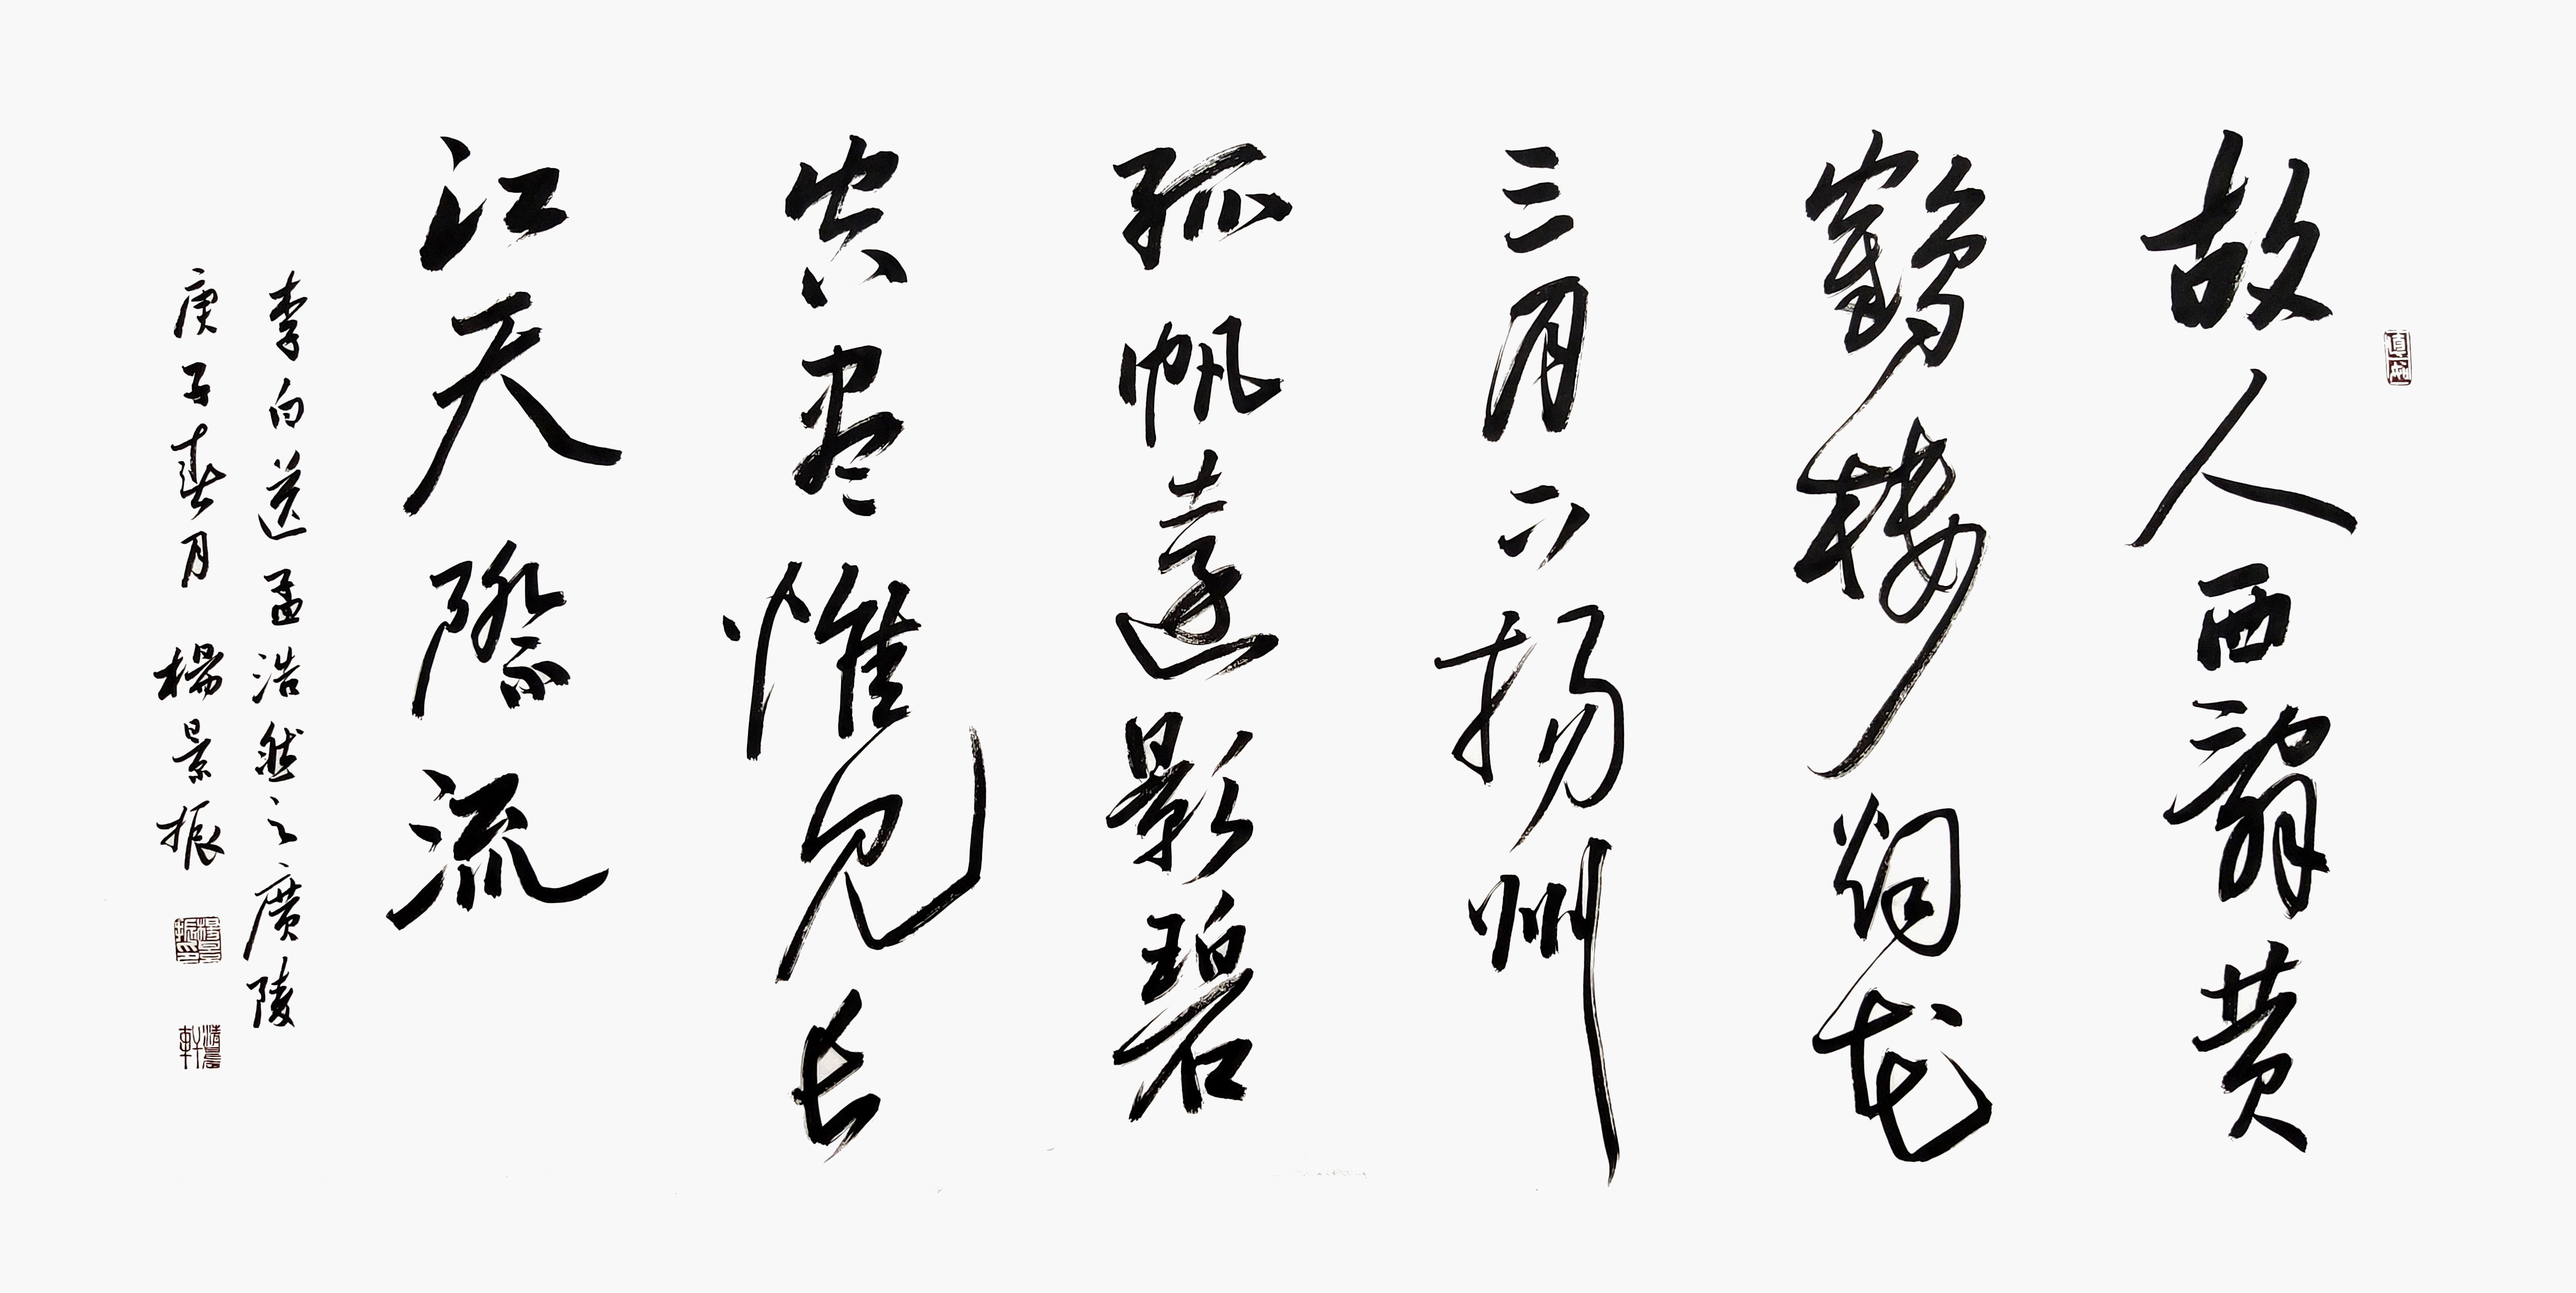 故人西辭黄
鶴樓烟花
三月下揚州
孤帆遠影碧
空盡惟見長
江天際流
李白送孟浩然之廣陵
庚子春月 楊景振
楊景振印